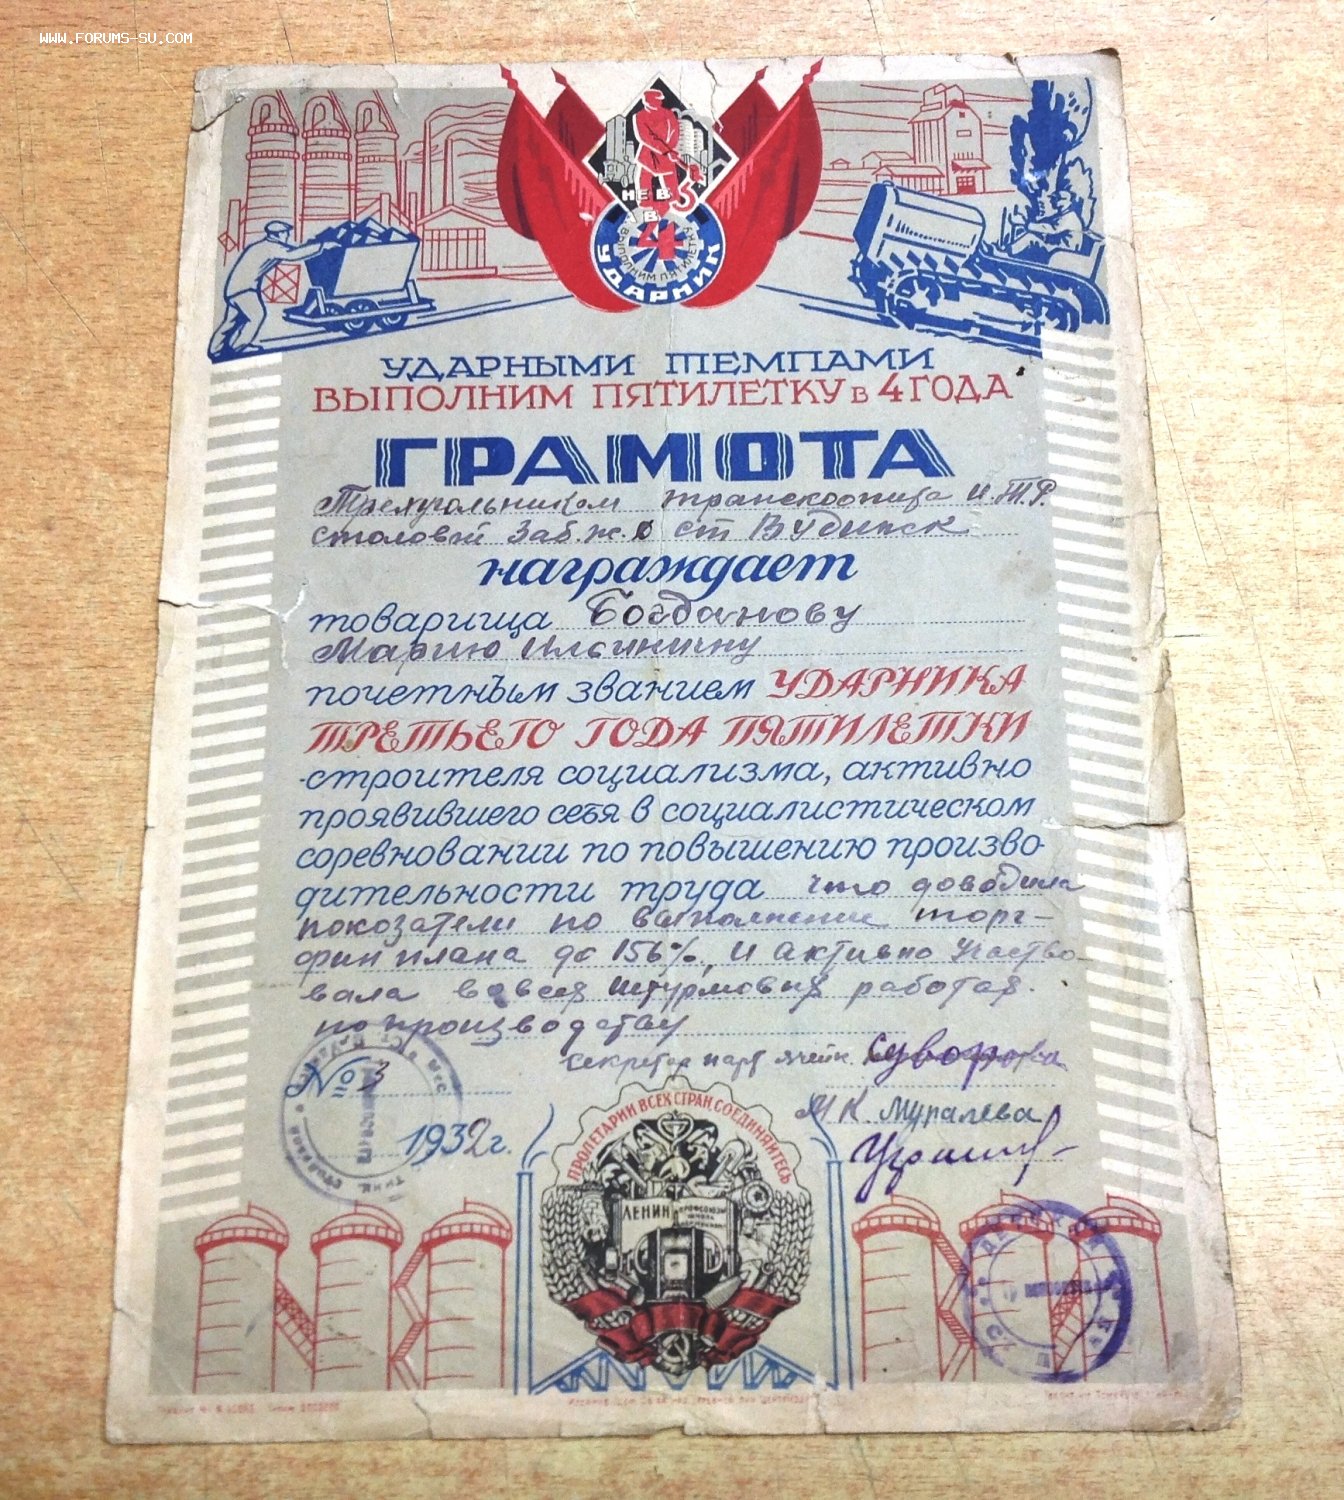 WWW.FORUMS-SU.COM
НЕ В 5
А В 4
ВЫПОЛНИМ ПЯТИЛЕТКУ
УДАРНИК
УДАРНЫМИ ТЕМПАМИ
ВЫПОЛНИМ ПЯТИЛЕТКУ в 4 ГОДА
ГРАМОТА
Треугольником И.Т.Р.
столовой Заб.ж.д ст
награждает
товарища Богданову
Марию Ильиничну
почетным званием УДАРНИКА
ТРЕТЬЕГО ГОДА ПЯТИЛЕТКИ
-строителя социализма, активно
проявившего себя в социалистическом
соревновании по повышению произво-
дительности труда что доводила
показатели по выполнение торг-
финплана до 156%, и активно участво-
вала во всех штурмовых работах.
по производству
секретар парт ячейк. Суворова
№ 3
М К. Муралева
1932 г.
ПРОЛЕТАРИИ ВСЕХ СТРАН, СОЕДИНЯЙТЕСЬ
ЛЕНИН
ПРОФСОЮЗЫ ШКОЛА КОММУНИЗМА